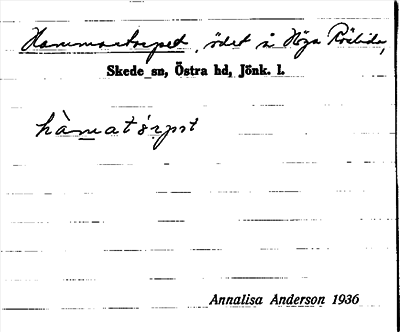 Hammartorpet, ödet å Höga Röslida,
Skede sn, Östra hd, Jönk. l.
hàmatórpət
Annalisa Anderson 1936